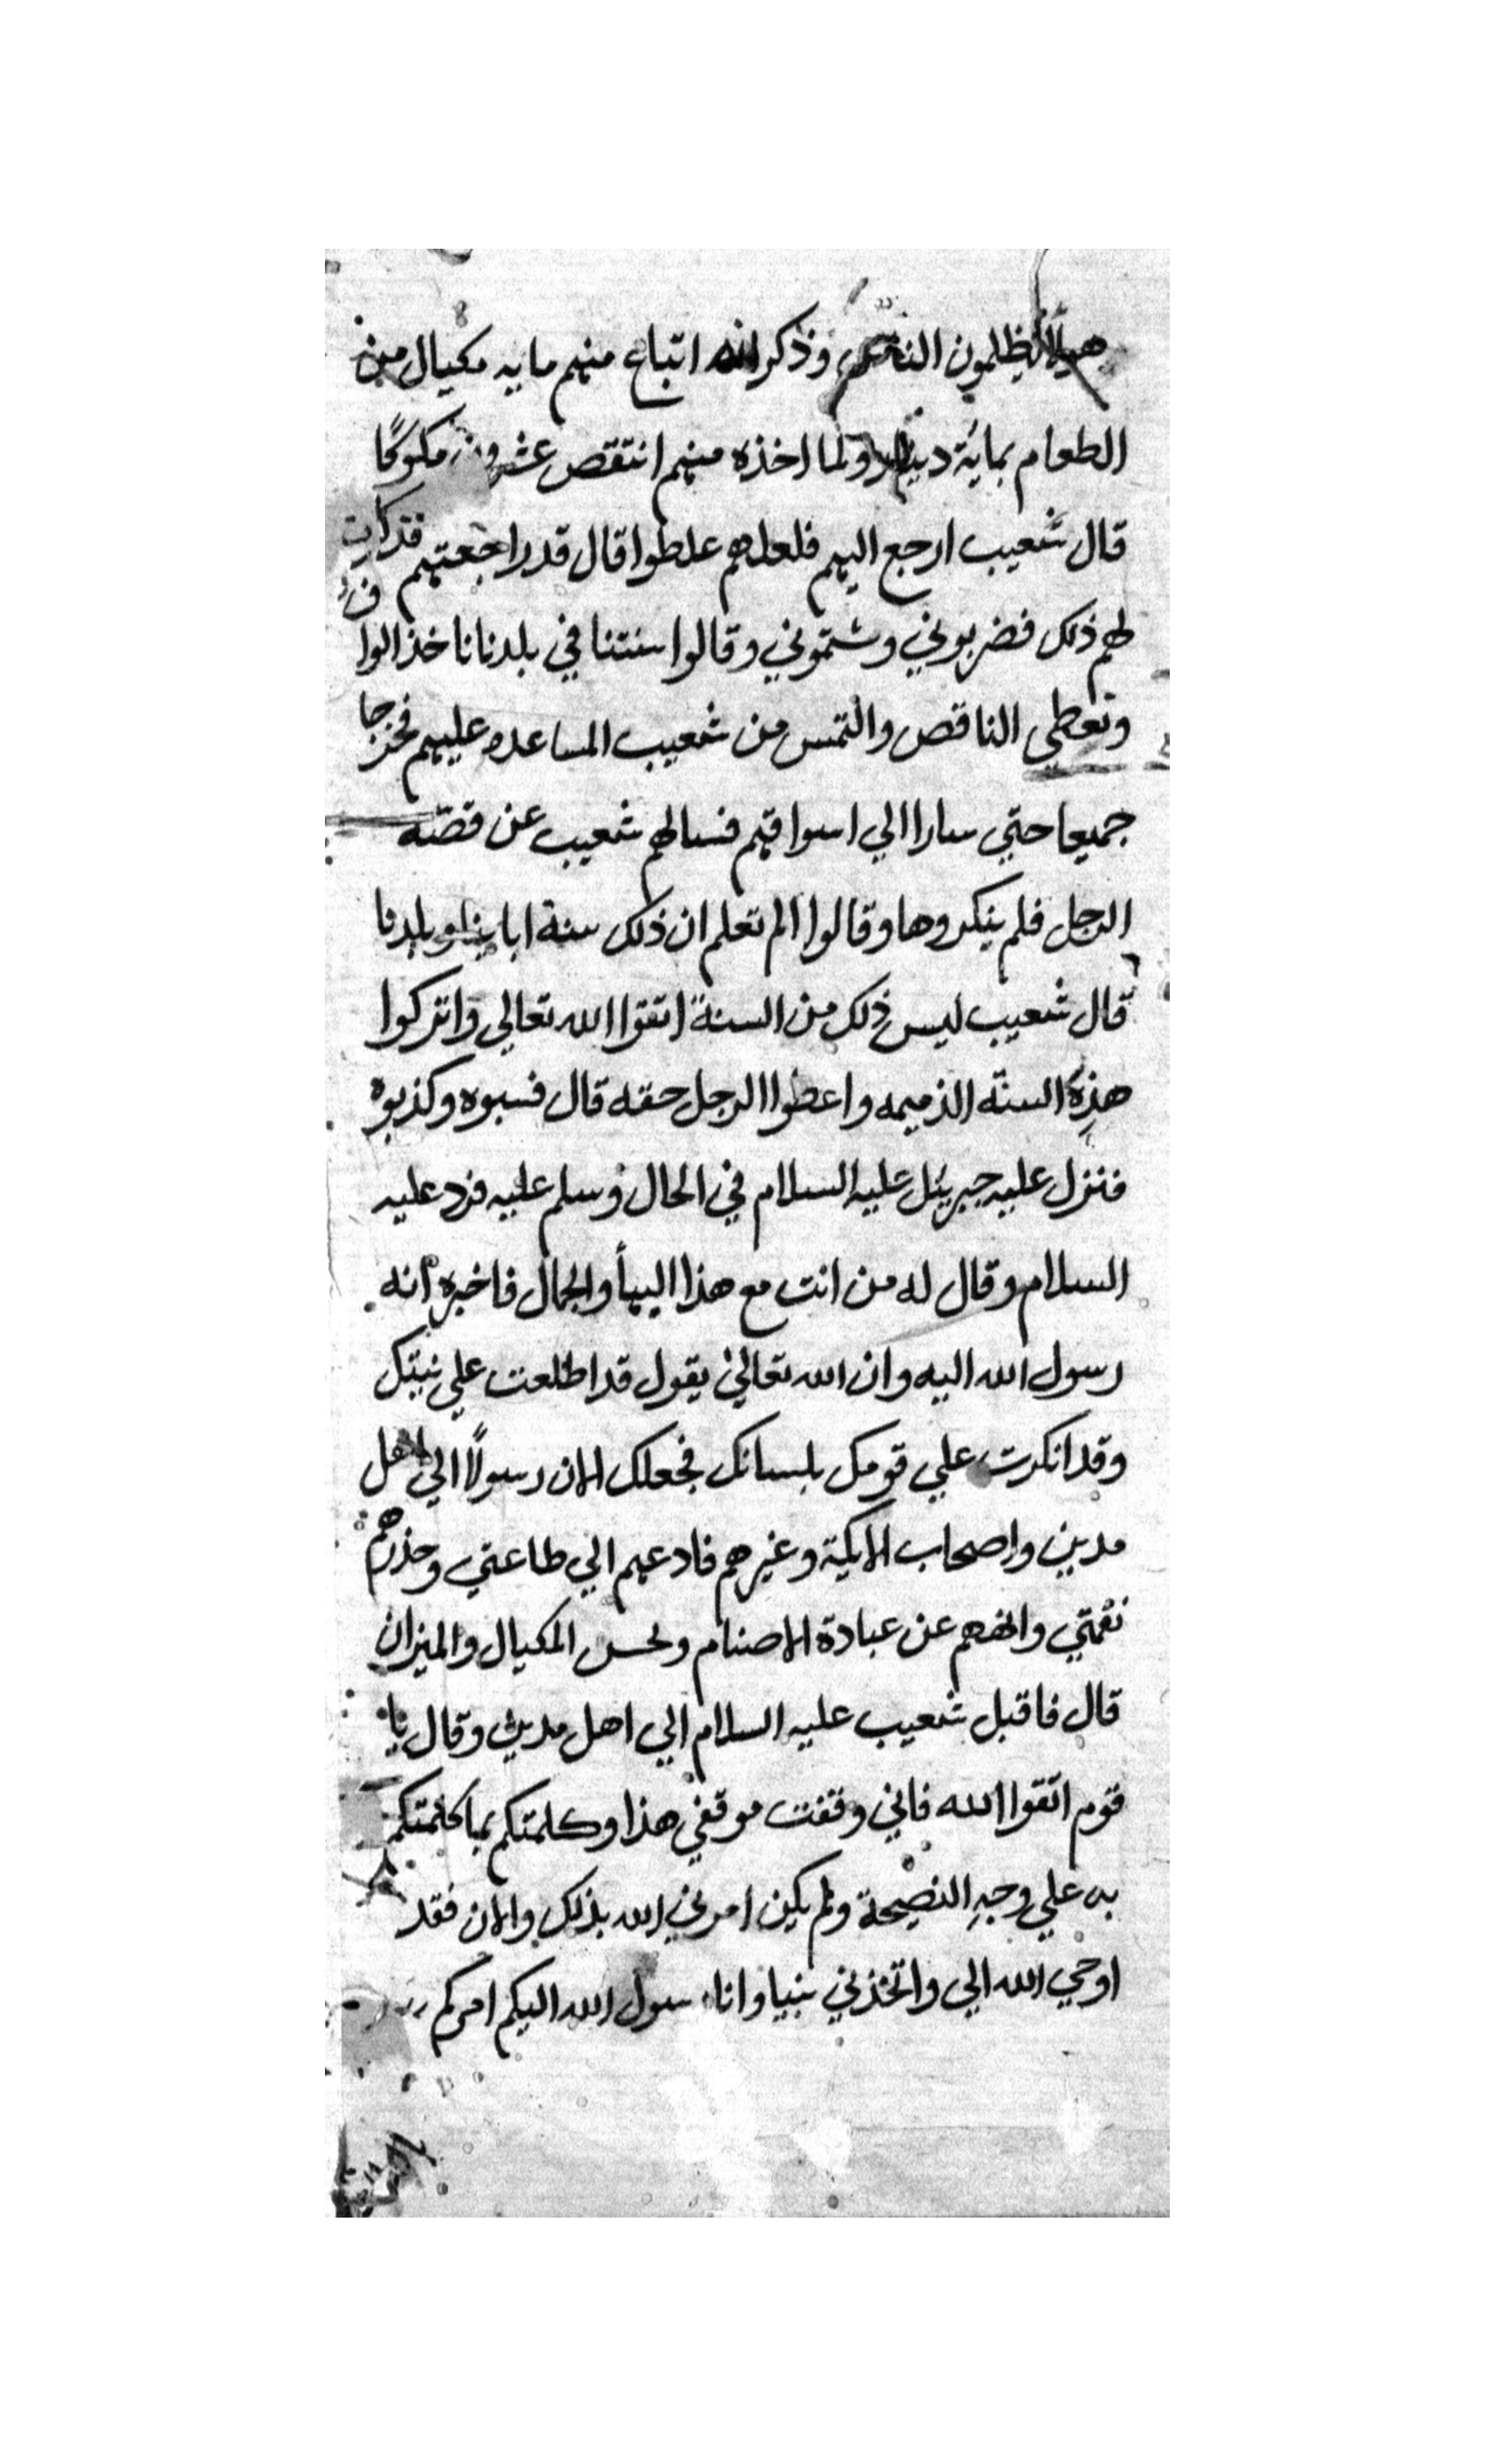 هولاء يظلمون الناس وذكر انه اتباع منهم مايه مكيال من
الطعام بمائة دينار ولما اخذه منهم انتقص عشرون مكوكا
قال شعيب ارجع اليهم فلعلهم غلطوا قال قد راجعتهم فذكرت
لهم ذلك فضربوني وشتموني وقالوا سنتنا في بلدنا ناخذ الوا
في
وتعطي الناقص والتمس من شعيب المساعده عليهم فخرجا
جميعا حتي سارا الي اسواقهم فسالهم شعيب عن قصته
الرجل فلم ينكروها وقالوا الم تعلم ان ذلك سنة ابائنا وبلدنا
قال شعيب ليس ذلك من السنة اتقوا الله تعالي واتركوا
هذه السنة الذميمه واعطوا الرجل حقه قال فسبوه وكذبوه
فنزل عليه جبريئل عليه السلام في الحال وسلم عليه فرد عليه
السلام وقال له من انت مع هذا البهأ والجمال فاخبره انه
رسول الله اليه وان الله تعالي يقول قد اطلعت علي نيتك
وقد انكرت علي قومك بلسانك فجعلك الان رسولًا الي اهل
مدين واصحاب الايكة وغيرهم فادعهم الي طاعتي وحذرهم
نقمتي وانههم عن عبادة الاصنام وبخس المكيال والميزان
قال فاقبل شعيب عليه السلام الي اهل مدين وقال يا
قوم اتقوا الله فاني وقفت موقفي هذا وكلمتكم بما كلمتكم
به علي وجه النصيحة ولم يكن امرني الله بذلك والان فقد
اوحي الله الي واتخذني نبيا وانا رسول الله اليكم امركم